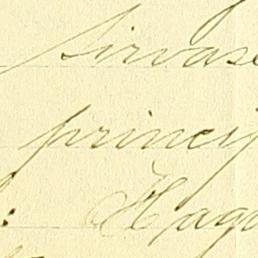 sirvase
princip
: Haga